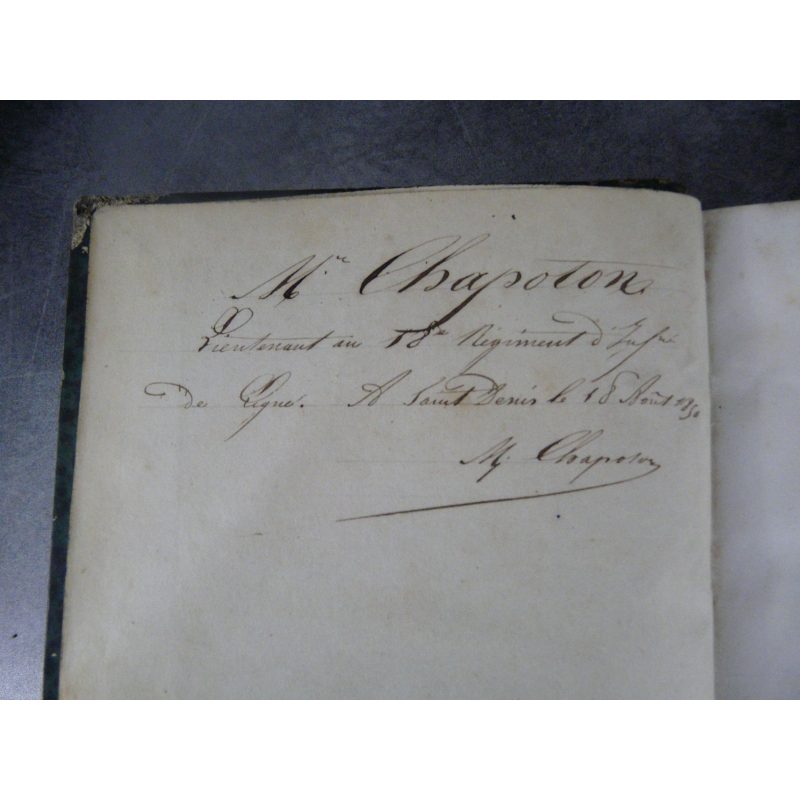 M.re Chapoton
Lieutenant au 18e Régiment d'Infie
de Ligne. A Saint Denis le 18 Août 1850
M. Chapoton